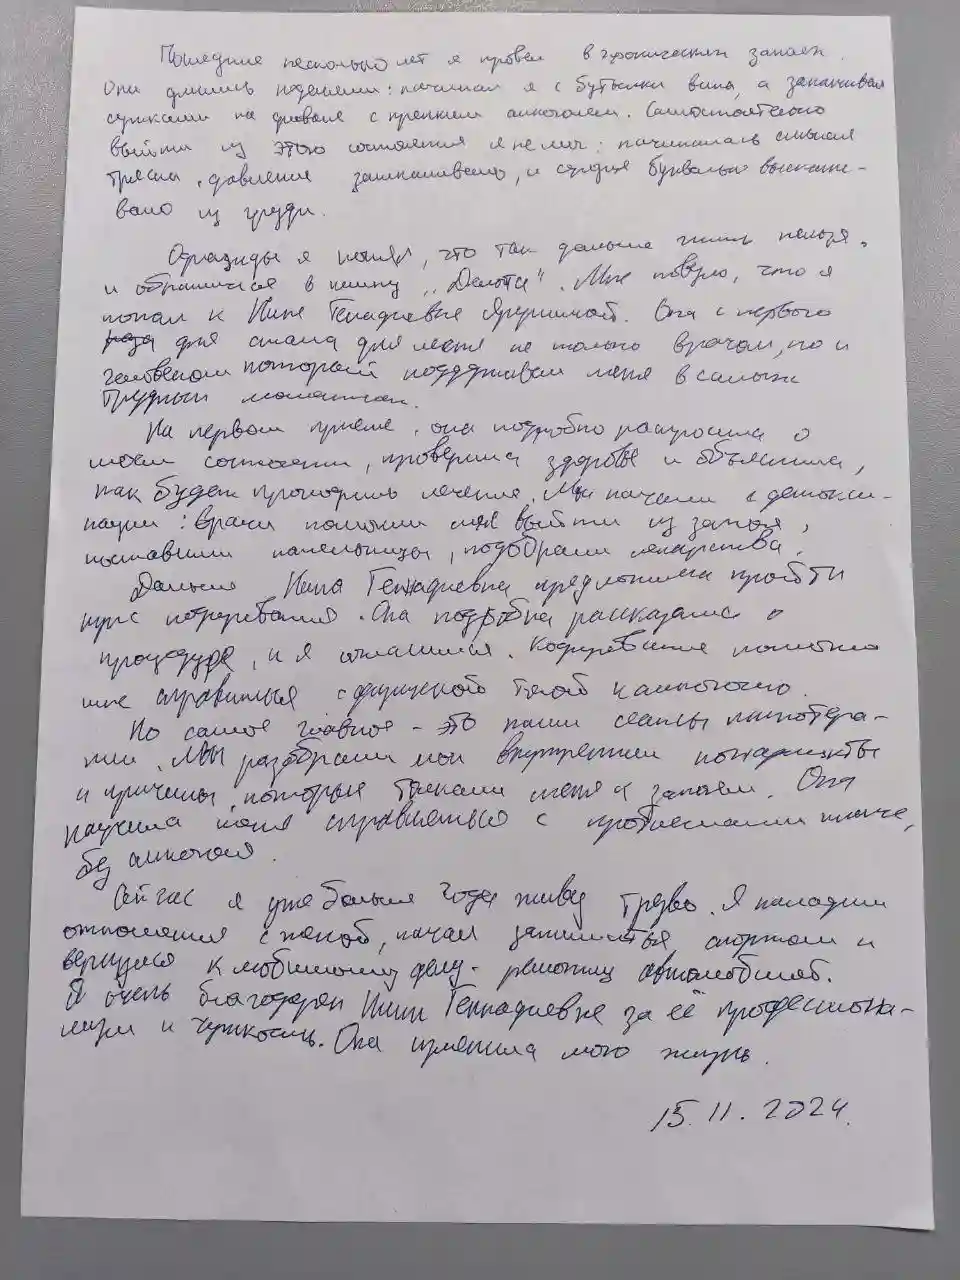 Последние несколько лет я провел в хронических запоях.
Они длились неделями: начинал я с бутылки вина, а заканчивал
сутками на диване с крепким алкоголем. Самостоятельно
выйти из этого состояния я не мог: начиналась сильная
тряска, давление зашкаливало, и сердце буквально выскаки-
вало из груди.
Однажды я понял, что так дальше жить нельзя,
и обратился в клинику „Дельта“. Мне повезло, что я
попал к Нине Геннадиевне. Она с первого
дня стала для меня не только врачом, но и
человеком который поддерживал меня в самых
трудных моментах.
На первом приеме, она подробно расспросила о
моем состоянии, проверила здоровье и объяснила,
как будет проходить лечение. Мы начали с детокси-
кации: врачи помогли мне выйти из запоя,
поставили капельницы, подобрали лекарства.
Дальше Нина Геннадиевна предложила пройти
курс кодирования. Она подробно рассказала о
процедуре, и я согласился. Кодирование помогло
мне справиться с физической тягой к алкоголю.
Но самое главное – это наши сеансы психотера-
пии. Мы разобрали мои внутренние конфликты
и причины, которые толкали меня к запоям. Она
научила меня справляться с проблемами иначе,
без алкоголя.
Сейчас я уже больше года живу трезво. Я наладил
отношения с женой, начал заниматься спортом и
вернулся к любимому делу - ремонту автомобилей.
Я очень благодарен Нине Геннадиевне за её профессиона-
лизм и чуткость. Она изменила мою жизнь.
15.11.2024.